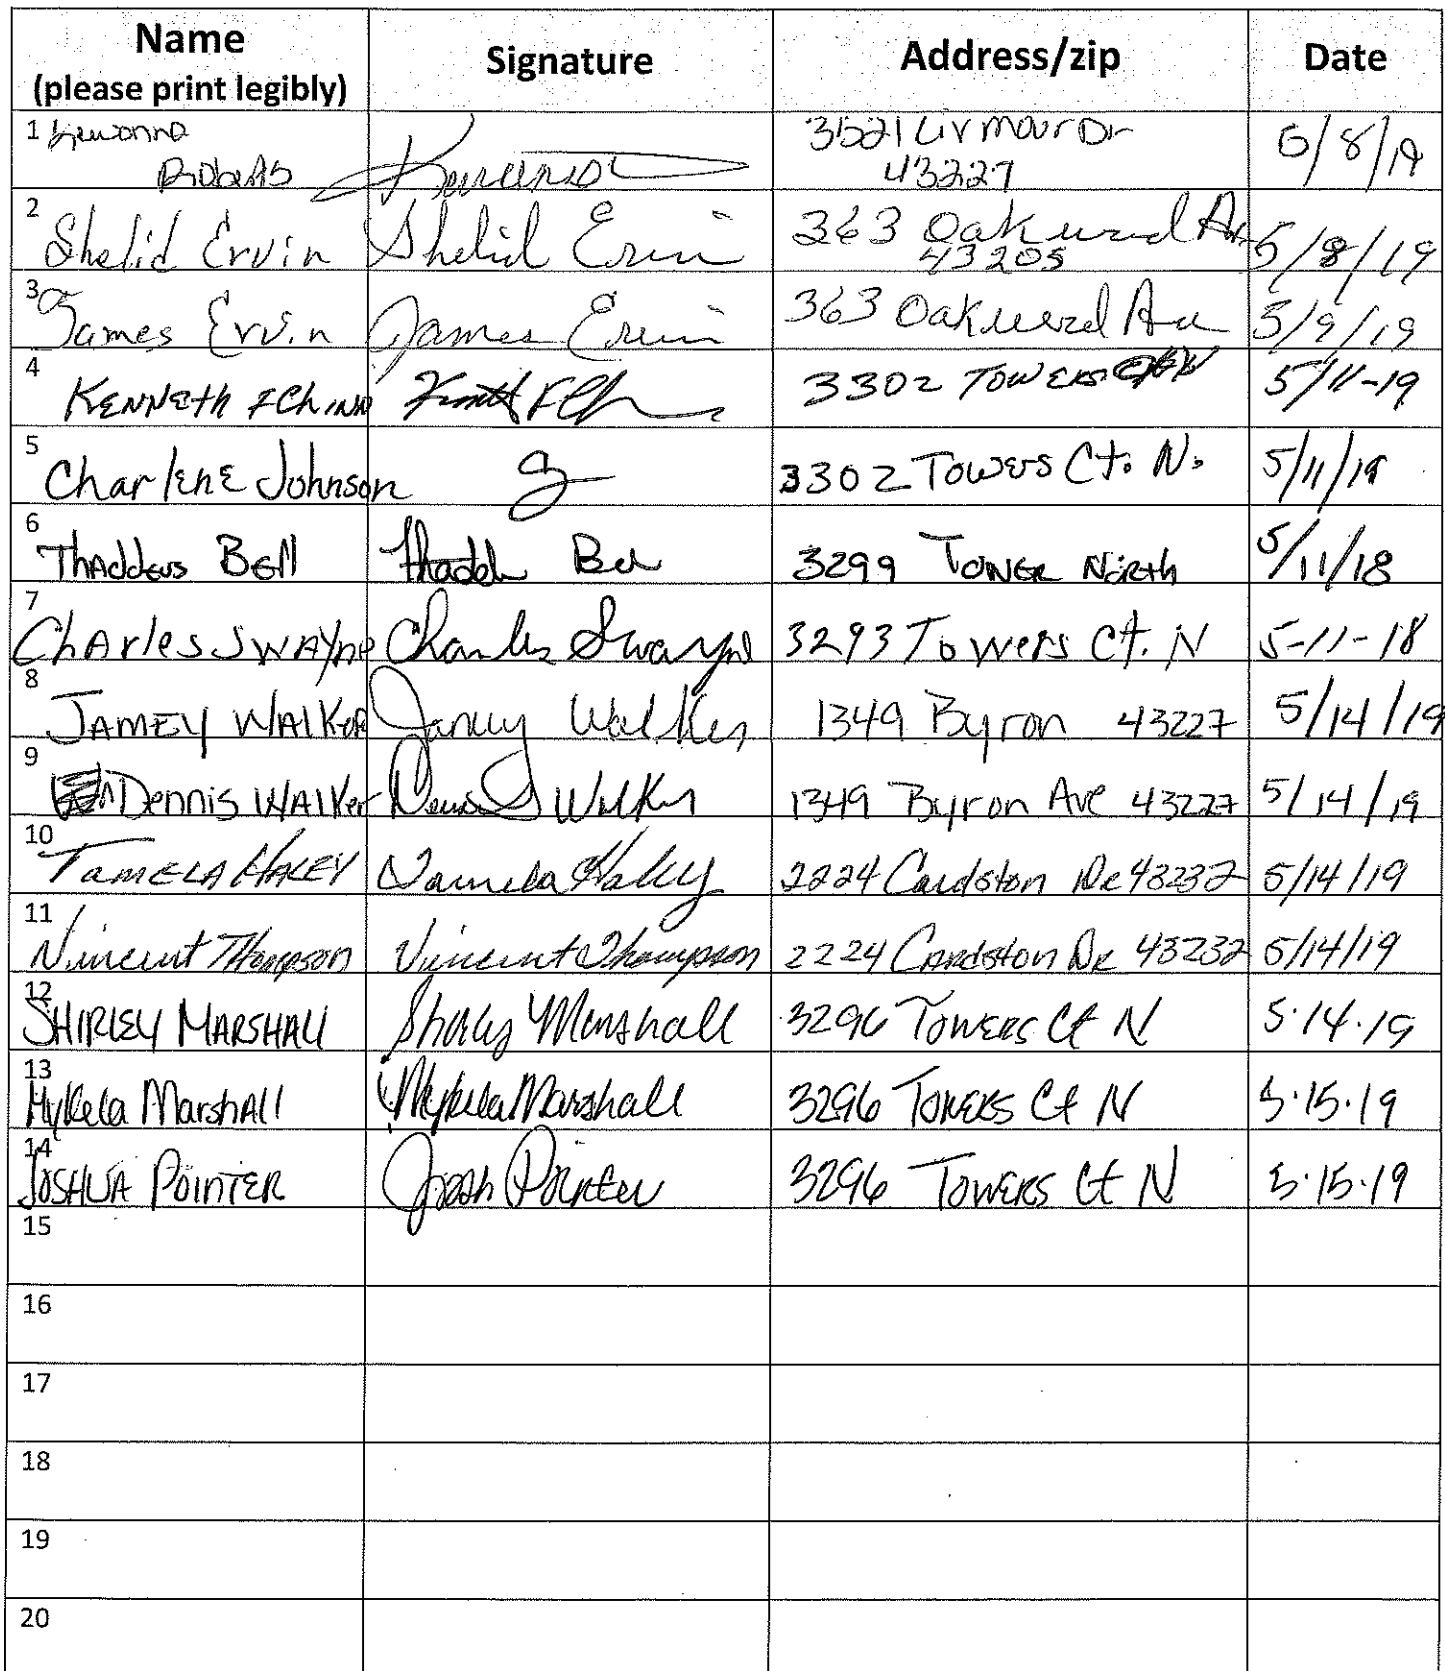 Name Signature Address/zip Date
(please print legibly)
1 Kewanna 3521 Livmour Dr 5/8/19
Roberts Kewanna 43227
2 Shelid Ervin Shelid Ervin 363 Oakwood Av 5/8/19
43205
3 James Ervin James Ervin 363 Oakwood Av 5/9/19
4 KENNETH F Chinn 3302 TOWERS 5/11-19
5 CharlenE Johnson 3302 Towers Ct. N. 5/11/19
6 Thaddeus Bell Thadd Be 3299 Tower North 5/11/18
7 Charles Swayne Charles Swayne 3293 Towers Ct. N 5-11-18
8 JAMEY WALKER Jamey Walker 1349 Byron 43227 5/14/19
9 Dennis WALKer Dennis Walker 1349 Byron Ave 43227 5/14/19
10 TAMELA HALEY Tamela Haley 2224 Cardston Dr 43232 5/14/19
11 Vincent Thompson Vincent Thompson 2224 Cardston Dr 43232 5/14/19
12 SHIRLEY MARSHALL Shirley Marshall 3296 Towers Ct N 5.14.19
13 Mykela Marshall Mykela Marshall 3296 Towers Ct N 5.15.19
14 JOSHUA POINTER Josh Pointer 3296 Towers Ct N 5.15.19
15
16
17
18
19
20